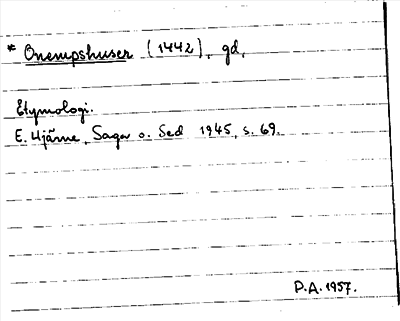 * Onempshuser (1442), gd.
Etymologi.
E. Hjärne, Saga o. Sed 1945, s. 69.
P.A. 1957.